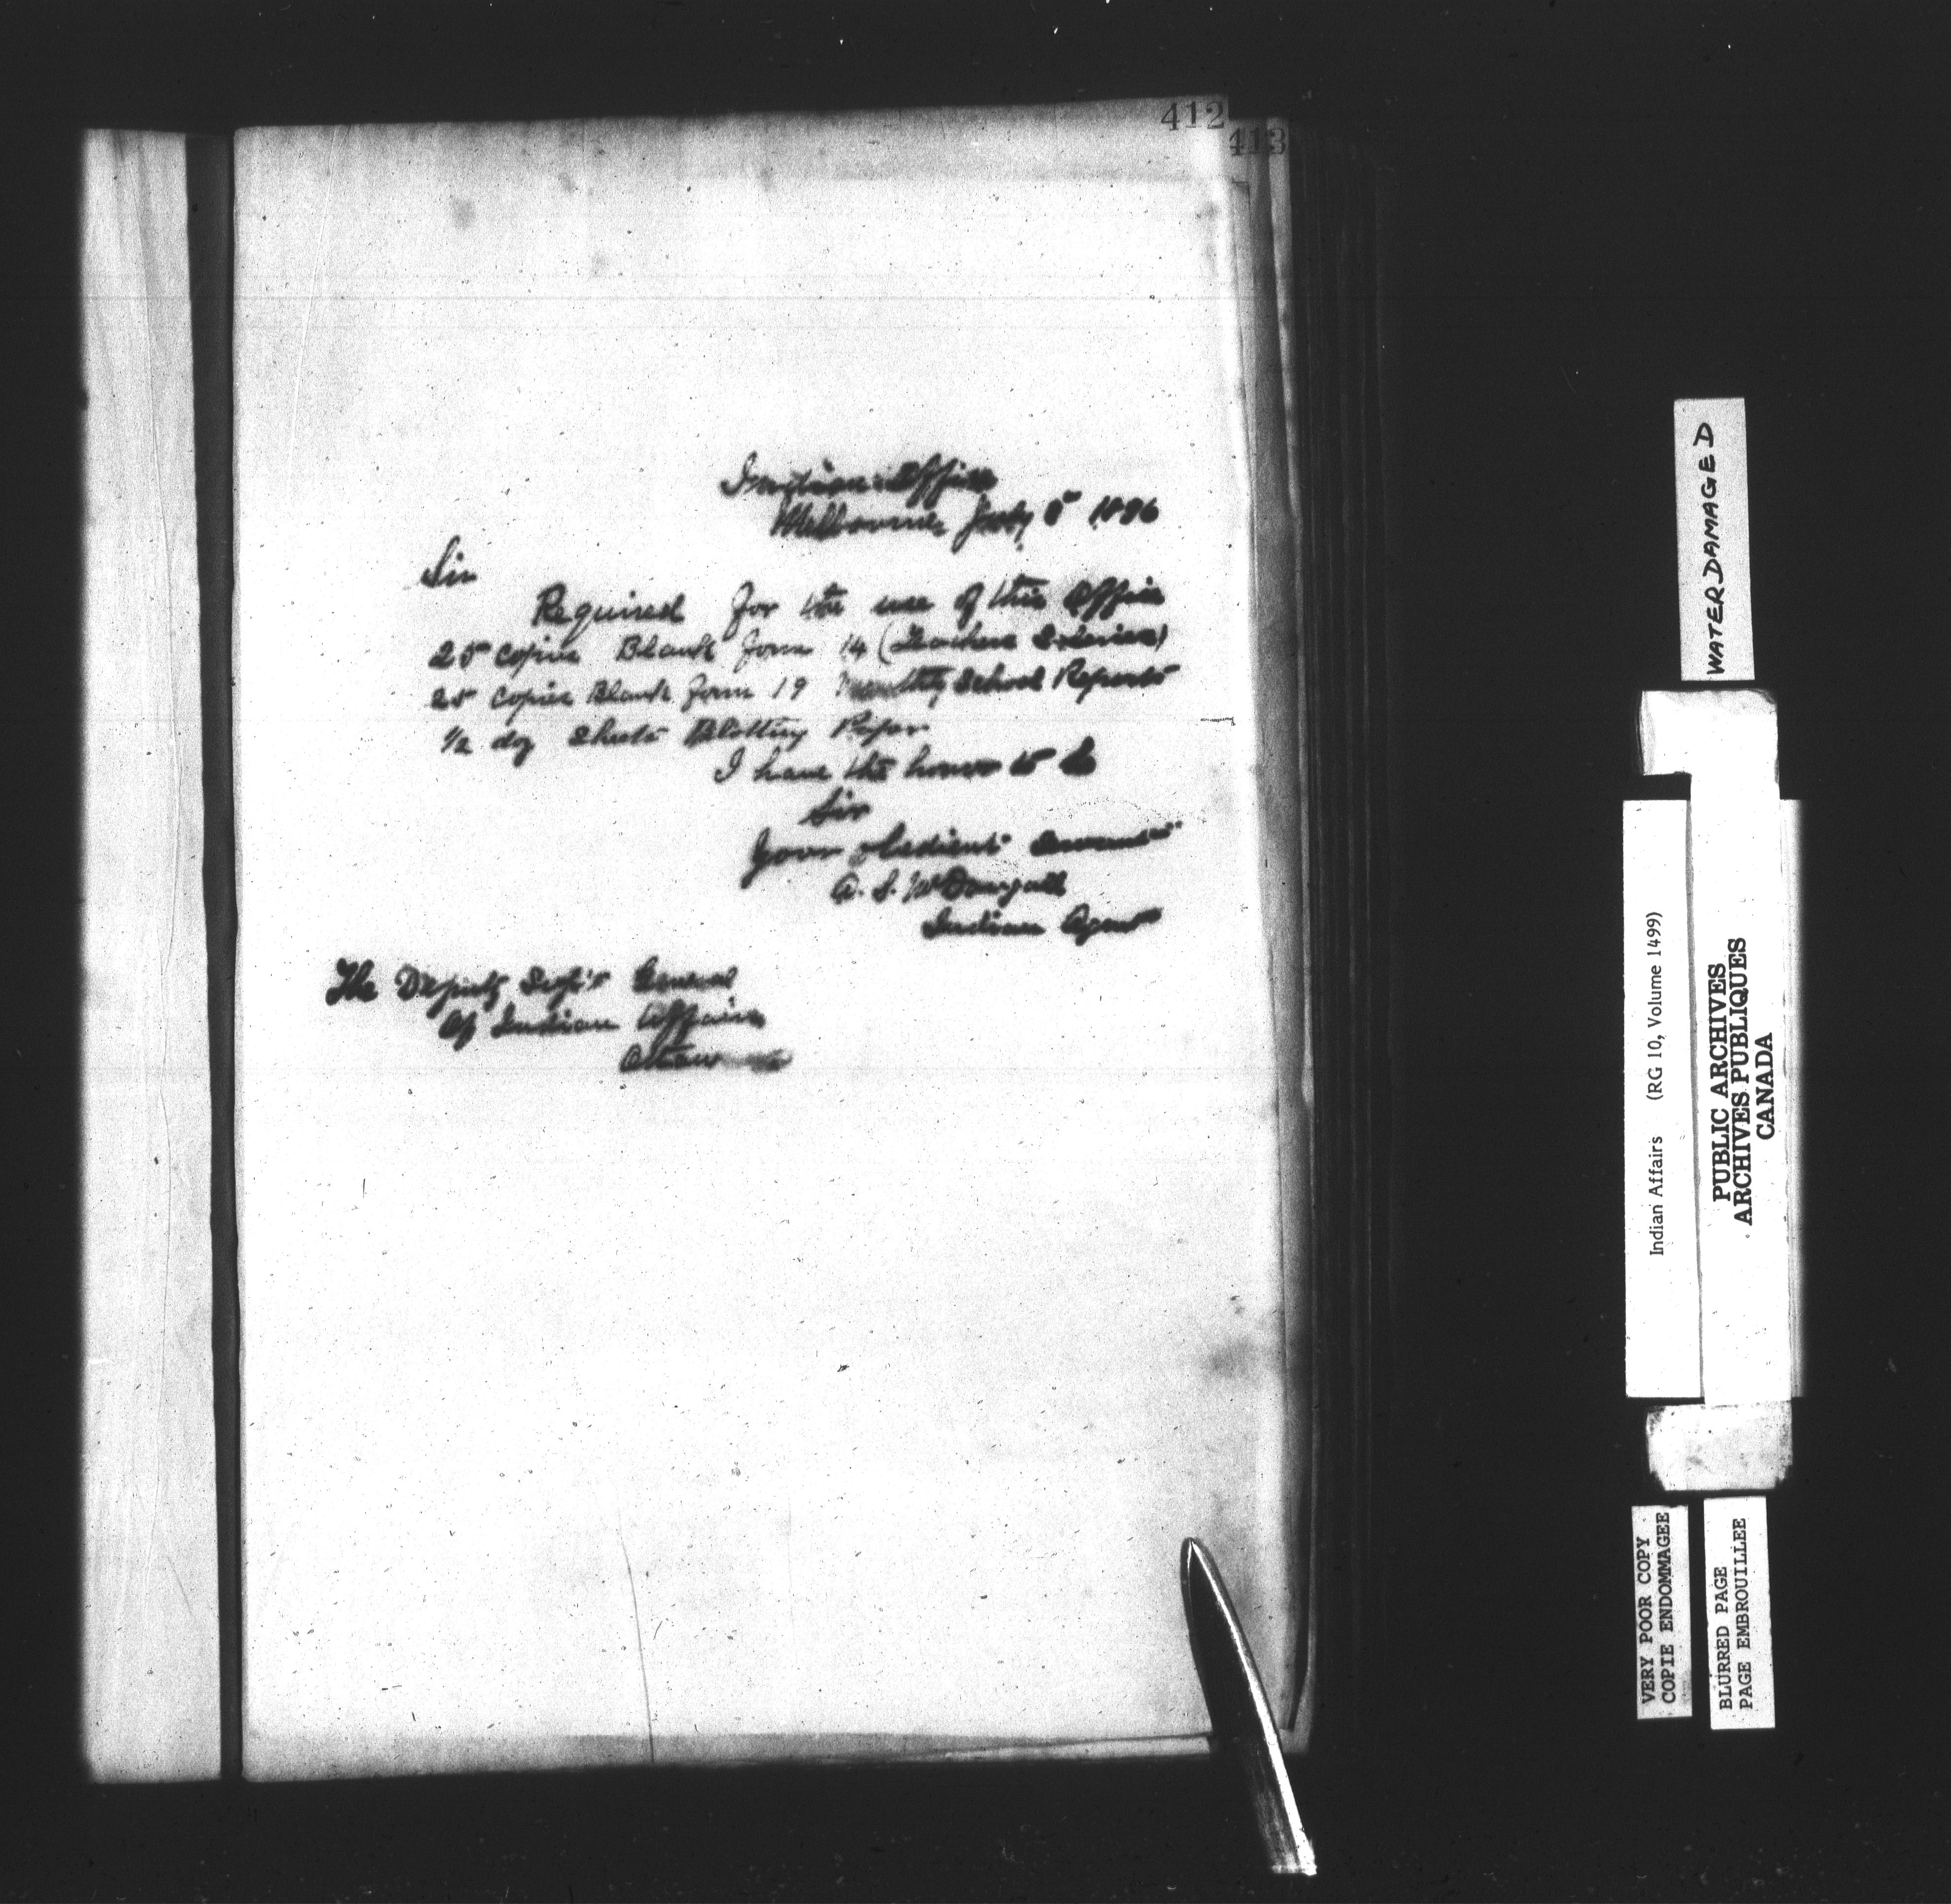 412
413
Indian Office
Melbourne July 8 1896
Sir
Required for the use of this Office
25 Copies Blank form 14 (Teachers Salaries)
25 Copies Blank form 19 Monthly School Reports
1/2 doz Sheets Blotting Paper
I have the honor to be
Sir
Your obedient Servant
A. S. McDougall
Indian Agent
The Deputy Supt General
Of Indian Affairs
Ottawa
WATERDAMAGED
Indian Affairs (RG 10, Volume 1499)
PUBLIC ARCHIVES
ARCHIVES PUBLIQUES
CANADA
VERY POOR COPY
COPIE ENDOMMAGEE
BLURRED PAGE
PAGE EMBROUILLEE